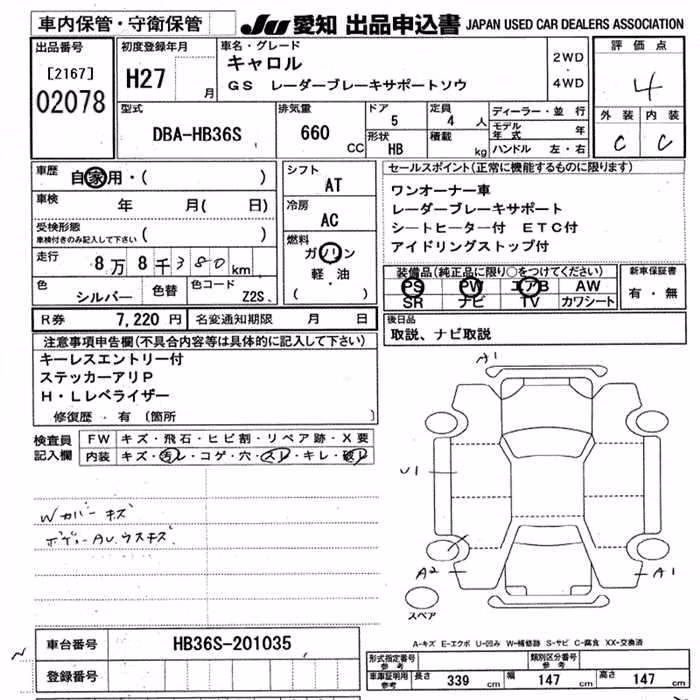 車内保管・守衛保管
JU 愛知 出品申込書 JAPAN USED CAR DEALERS ASSOCIATION
出品番号
[2167]
02078
初度登録年月
H27 月
車名・グレード
キャロル
GS レーダーブレーキサポートソウ
2WD
・
4WD
評価点
4
外装 内装
C C
型式
DBA-HB36S
排気量
660 CC
ドア
5
定員
4 人
形状
HB
積載
kg
ディーラー・並行
モデル年式 年
ハンドル 左・右
車歴
自家用・( )
車検 年 月( 日)
受検形態
車検付きのみ記入して下さい ( )
走行 8万8千380km
色
シルバー
色替
色コード
Z2S
シフト
AT
冷房
AC
燃料
ガソリン
軽・油
( )
セールスポイント(正常に機能するものに限ります)
ワンオーナー車
レーダーブレーキサポート
シートヒーター付 ETC付
アイドリングストップ付
装備品(純正品に限り○をつけてください)
PS PW エアB AW
SR ナビ TV カワシート
新車保証書
有・無
R券 7,220円 名変通知期限 月 日
後日品
取説、ナビ取説
注意事項申告欄(不具合内容等は具体的に記入して下さい)
キーレスエントリー付
ステッカーアリP
H・Lレベライザー
修復歴・有 〔箇所 〕
検査員
記入欄
FW キズ・飛石・ヒビ割・リペア跡・X要
内装 キズ・汚レ・コゲ・穴・スレ・キレ・破レ
Wカバーキズ
ボデーAU.ウスキズ
A1
U1
A2
A1
スペア
A-キズ E-エクボ U-凹み W-補修跡 S-サビ C-腐食 XX-交換済
車台番号 HB36S-201035
登録番号
形式指定番号
参考
類別区分番号
参考
車庫証明用
参考
長さ 339 cm 幅 147 cm 高さ 147 cm